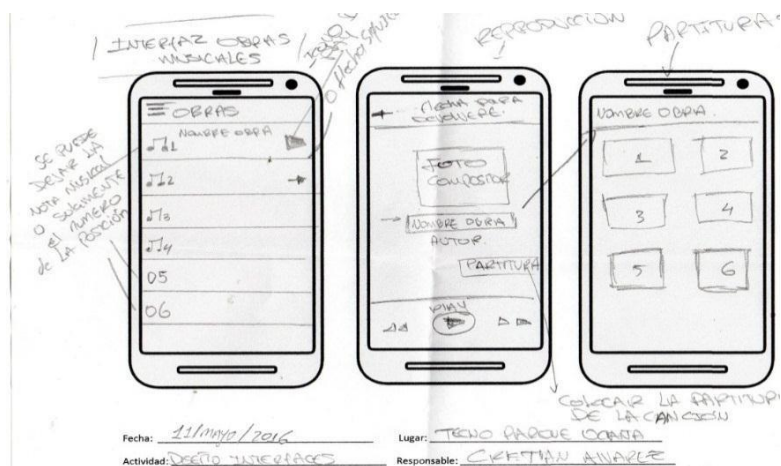 INTERFAZ OBRAS
MUSICALES
REPRODUCCION
PARTITURAS
O flecha
SE PUEDE
DEJAR LA
NOTA MUSICAL
O SOLAMENTE
el NUMERO
de LA POSICIÓN
OBRAS
NOMBRE OBRA
1
2
3
4
05
06
FLECHA PARA
DEVOLVERE.
FOTO
COMPOSITOR
NOMBRE OBRA
AUTOR.
PARTITURA
PLAY
NOMBRE OBRA.
1 2
3 4
5 6
COLOCAR LA PARTITURA
DE LA CANCIÓN
Fecha: 11/mayo/2016
Lugar: TECNO PARQUE OCAÑA
Actividad: DISEÑO INTERFACES
Responsable: CRISTIAN ALVAREZ